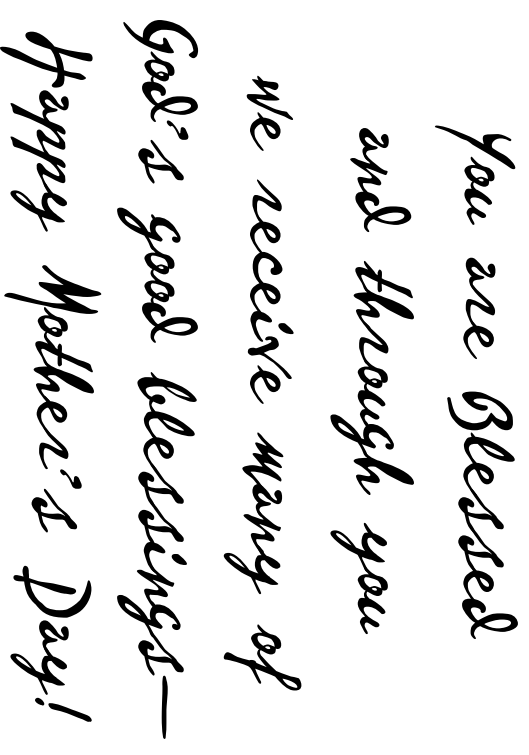 You are Blessed
and through you
we receive many of
God's good blessings—
Happy Mother's Day!